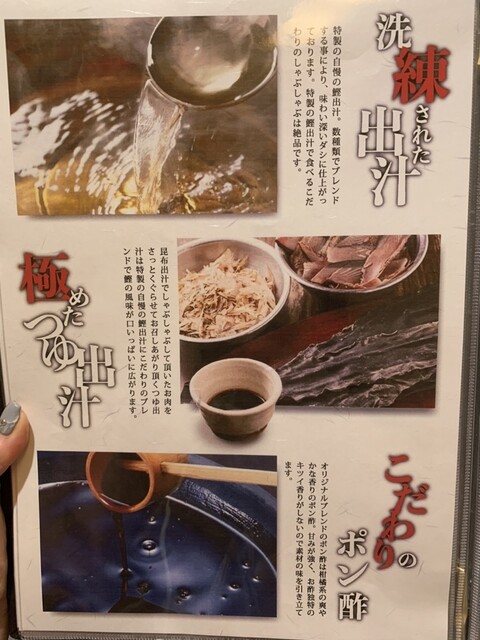 洗練された出汁
特製の自慢の鰹出汁。数種類でブレンド
する事により、味わい深いダシに仕上がっ
ております。特製の鰹出汁で食べるこだ
わりのしゃぶしゃぶは絶品です。
極めたつゆ出汁
昆布出汁でしゃぶしゃぶして頂いたお肉を
さっとくぐらせてお召しあがり頂くつゆ出
汁は特製の自慢の鰹出汁にこだわりのブレ
ンドで鰹の風味が口いっぱいに広がります。
こだわりのポン酢
オリジナルブレンドのポン酢は柑橘系の爽や
かな香りのポン酢。甘みが強く、お酢独特の
キツイ香りがしないので素材の味を引き立て
ます。